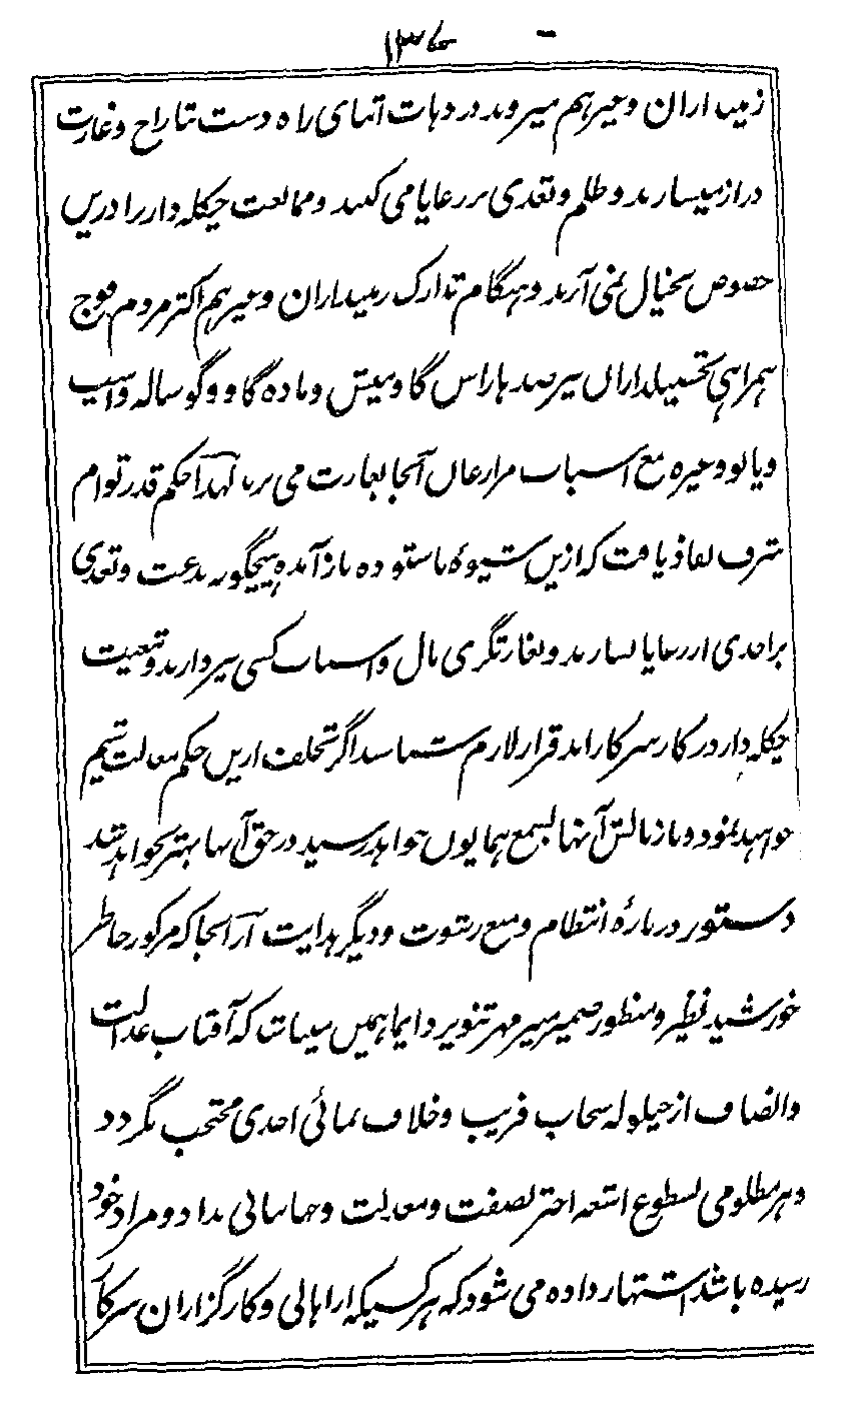 ۱۳۷
زمیداران وغیرہم میروند در دہات آنہای راہ دست تاراج وغارت
دراز میسازند وظلم وتعدی بر رعایا می کنند وممانعت چکلہ دار را درین
خصوص بخیال نمی آرند وہنگام تدارک زمیداران وغیرہم اکثر مردم فوج
ہمراہی تحصیلداران نیز صدہا راس گاومیش ومادہ گاو وگوسالہ واسپ
ویابو وغیرہ مع اسباب مزارعان آنجا بغارت می برند لہذا حکم قدر توام
شرف نفاذ یافت کہ ازین شیوۂ ناستودہ باز آمدہ ہیچگونہ بدعت وتعدی
بر احدی از رعایا نسازند وبغارتگری مال واسباب کسی نپردازند وتبعیت
چکلہ دار در کار سرکار ابد قرار لازم شناسند اگر تخلف ازین حکم معدلت شیم
خواہند نمود وباز نالش آنہا بسمع ہمایون خواہد رسید در حق آنہا بہتر نخواہد شد
دستور دربارۂ انتظام ومنع رشوت ودیگر ہدایت آنکہ از آنجا کہ مرکوز خاطر
خورشید نظیر ومنظور ضمیر منیر مہر تنویر دایما ہمین میباشد کہ آفتاب عدالت
وانصاف از حیلولہ سحاب فریب وخلاف نمائی احدی محتجب نگردد
وہر مظلومی بسطوع اشعہ اختر نصفت ومعدلت وجہانبانی بداد ومراد خود
رسیدہ باشد اشتہار دادہ می شود کہ ہر کسیکہ از اہالی وکارگزاران سرکار